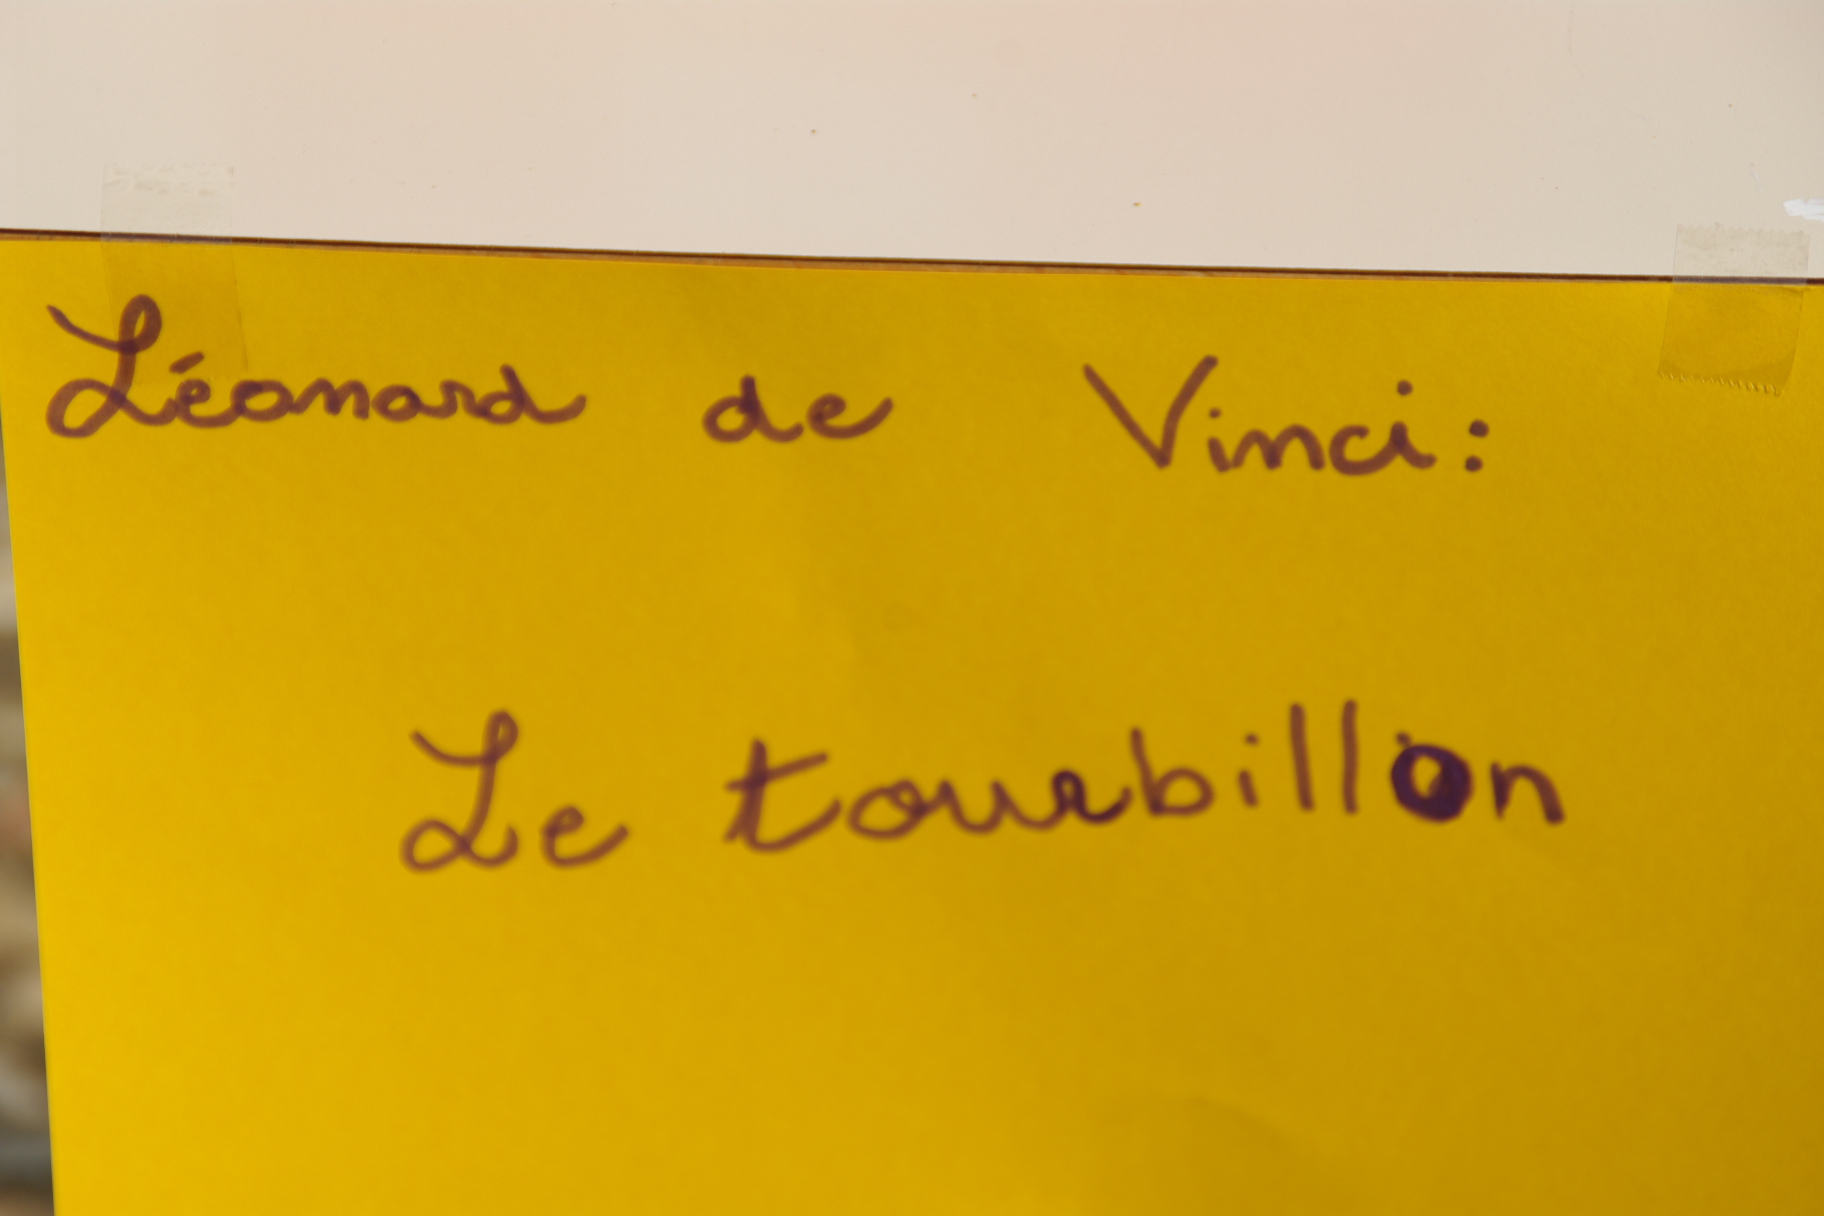 Léonard de Vinci:
Le tourbillon